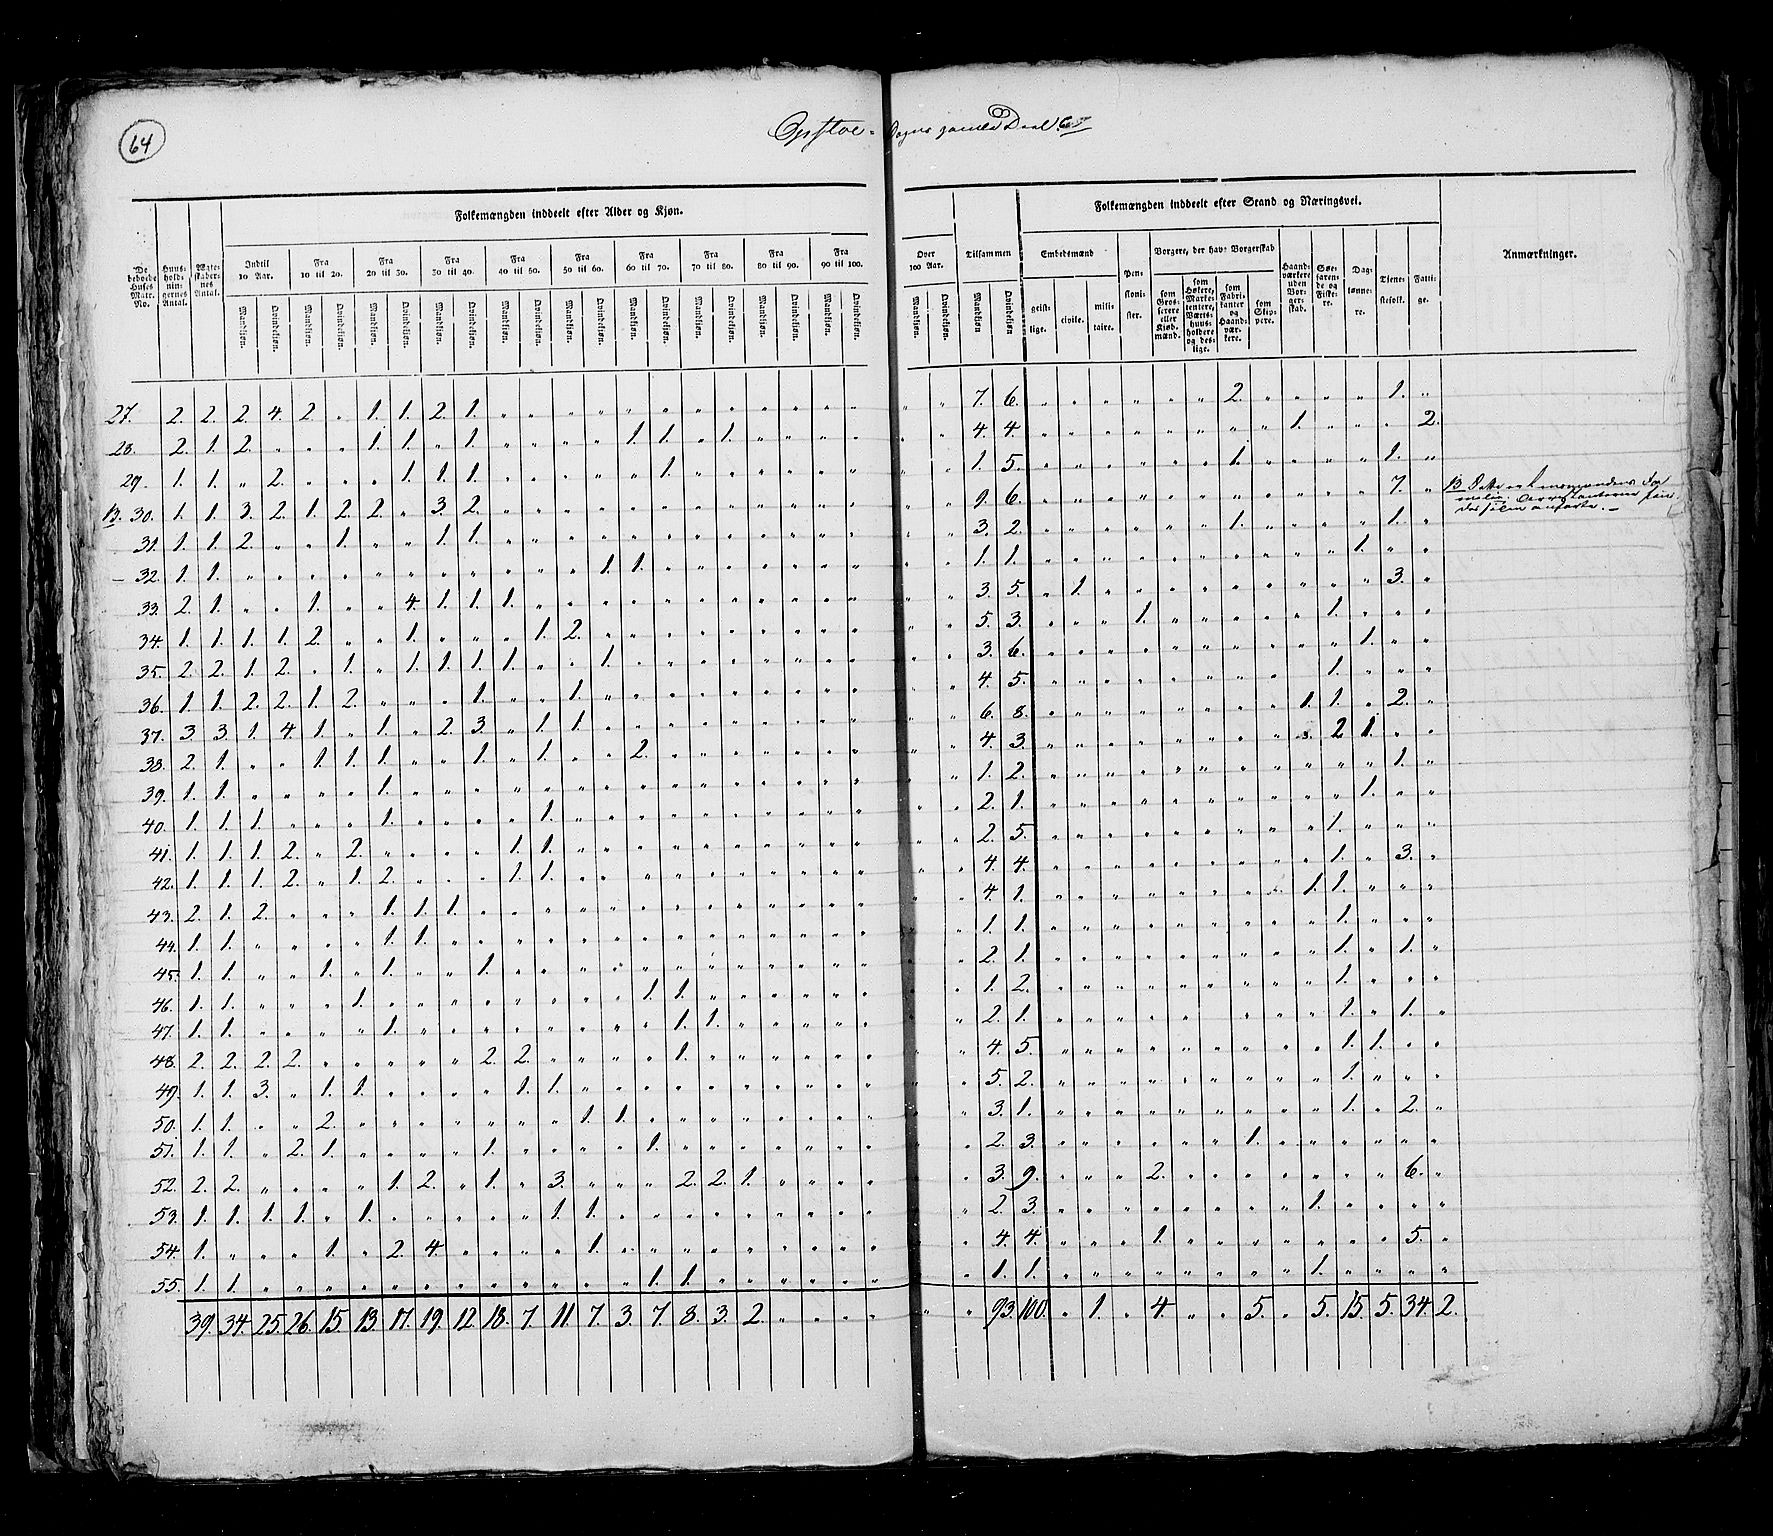 64
Opstoe-
Folkemængden inddeelt efter Alder og Kjøn.
Folkemængden inddeelt efter Stand og Næringsvei.
De beboede Huses Matr. No.
Huus-holdningernes Antal.
Ægteskabernes Antal.
Indtil 10 Aar. Fra 10 til 20. Fra 20 til 30. Fra 30 til 40. Fra 40 til 50. Fra 50 til 60. Fra 60 til 70. Fra 70 til 80. Fra 80 til 90. Fra 90 til 100. Over 100 Aar. Tilsammen
Mandkjøn. Qvindekjøn. Mandkjøn. Qvindekjøn. Mandkjøn. Qvindekjøn. Mandkjøn. Qvindekjøn. Mandkjøn. Qvindekjøn. Mandkjøn. Qvindekjøn. Mandkjøn. Qvindekjøn. Mandkjøn. Qvindekjøn. Mandkjøn. Qvindekjøn. Mandkjøn. Qvindekjøn. Mandkjøn. Qvindekjøn. Mandkjøn Qvindekjøn
Embedsmænd
geistlige. civile. militaire.
Pensionister.
Borgere, der have Borgerskab
som Grosserere eller Kjøbmænd.
som Høkere, Marketentere, Værtshuusholdere og deslige.
som Fabrikanter og Haandværkere.
som Skippere.
Haandværkere uden Borgerskab.
Søefarende og Fiskere.
Daglønnere.
Tjenestefolk.
Fattige.
Anmærkninger.
27. 2. 2. 2. 4. 2. 1. 1. 2. 1. 7. 6. 2. 1.
28. 2. 1. 2. 1. 1. 1. 1. 1. 1. 4. 4. 1. 2.
29. 1. 1. 2. 1. 1. 1. 1. 1. 5. 1. 1.
B. 30. 1. 1. 3. 2. 1. 2. 2. 3. 2. 9. 6. 7.
31. 1. 1. 2. 1. 1. 1. 3. 2. 1. 1.
32. 1. 1. 1. 1. 1. 1. 1.
33. 2. 1. 1. 4. 1. 1. 1. 3. 5. 1. 3.
34. 1. 1. 1. 1. 2. 1. 1. 2. 5. 3. 1. 1.
35. 2. 2. 1. 2. 1. 1. 1. 1. 1. 1. 3. 6. 1.
36. 1. 1. 2. 2. 1. 2. 1. 1. 4. 5. 1.
37. 3. 3. 1. 4. 1. 1. 2. 3. 1. 1. 6. 8. 1. 1. 2.
38. 2. 1. 1. 1. 1. 1. 1. 2. 4. 3. 2 1.
39. 1. 1. 1. 1. 2. 1.
40. 1. 1. 1. 1. 1. 2. 1. 1.
41. 1. 1. 1. 2. 2. 1. 1. 2. 5. 1.
42. 1. 1. 1. 2. 1. 2. 1. 1. 4. 4. 1. 3.
43. 2. 1. 2. 1. 1. 1. 4. 1. 1. 1.
44. 1. 1. 1. 1. 1. 1. 1.
45. 1. 1. 1. 1. 1. 2. 1. 1. 1.
46. 1. 1. 1. 1. 1. 1. 2. 1.
47. 1. 1. 1. 1. 1. 2. 1. 1. 1.
48. 2. 2. 2. 2. 2. 2. 1. 4. 5. 1. 1.
49. 1. 1. 3. 1. 1. 1. 1. 5. 2. 1.
50. 1. 1. 2. 1. 1. 3. 1. 1. 2.
51. 1. 1. 2. 1. 1. 1. 2. 3. 1.
52. 2. 2. 1. 2. 1. 3. 2. 2. 1. 3. 9. 2. 6.
53. 1. 1. 1. 1. 1. 1. 1. 2. 3. 1.
54. 1. 1. 2. 4. 1. 4. 4. 1. 5.
55. 1. 1. 1. 1. 1. 1. 1.
39. 34. 25. 26. 15. 13. 17. 19. 12. 18. 7. 11. 7. 3. 7. 8. 3. 2. 93. 100. 1. 4. 5. 5. 15. 5. 34. 2.